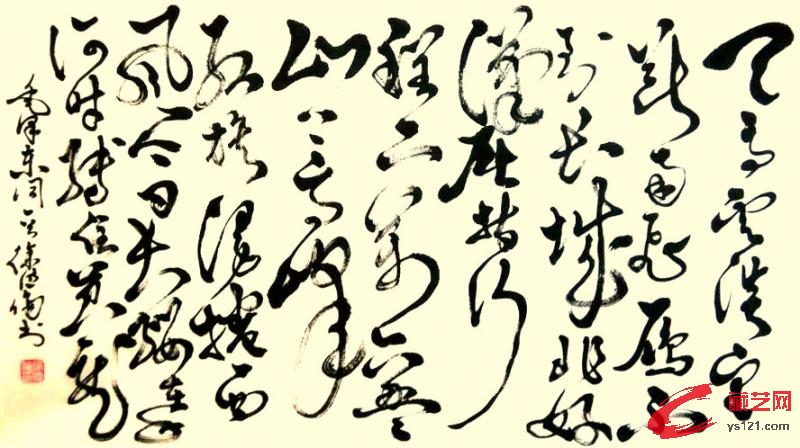 天高云淡望
断南飞雁不
到长城非好
漢屈指行
程二万六盤
山上高峰
红旗漫捲西
风今日长缨在手
何时缚住苍龙
毛泽东词
书
艺网
ys121.com